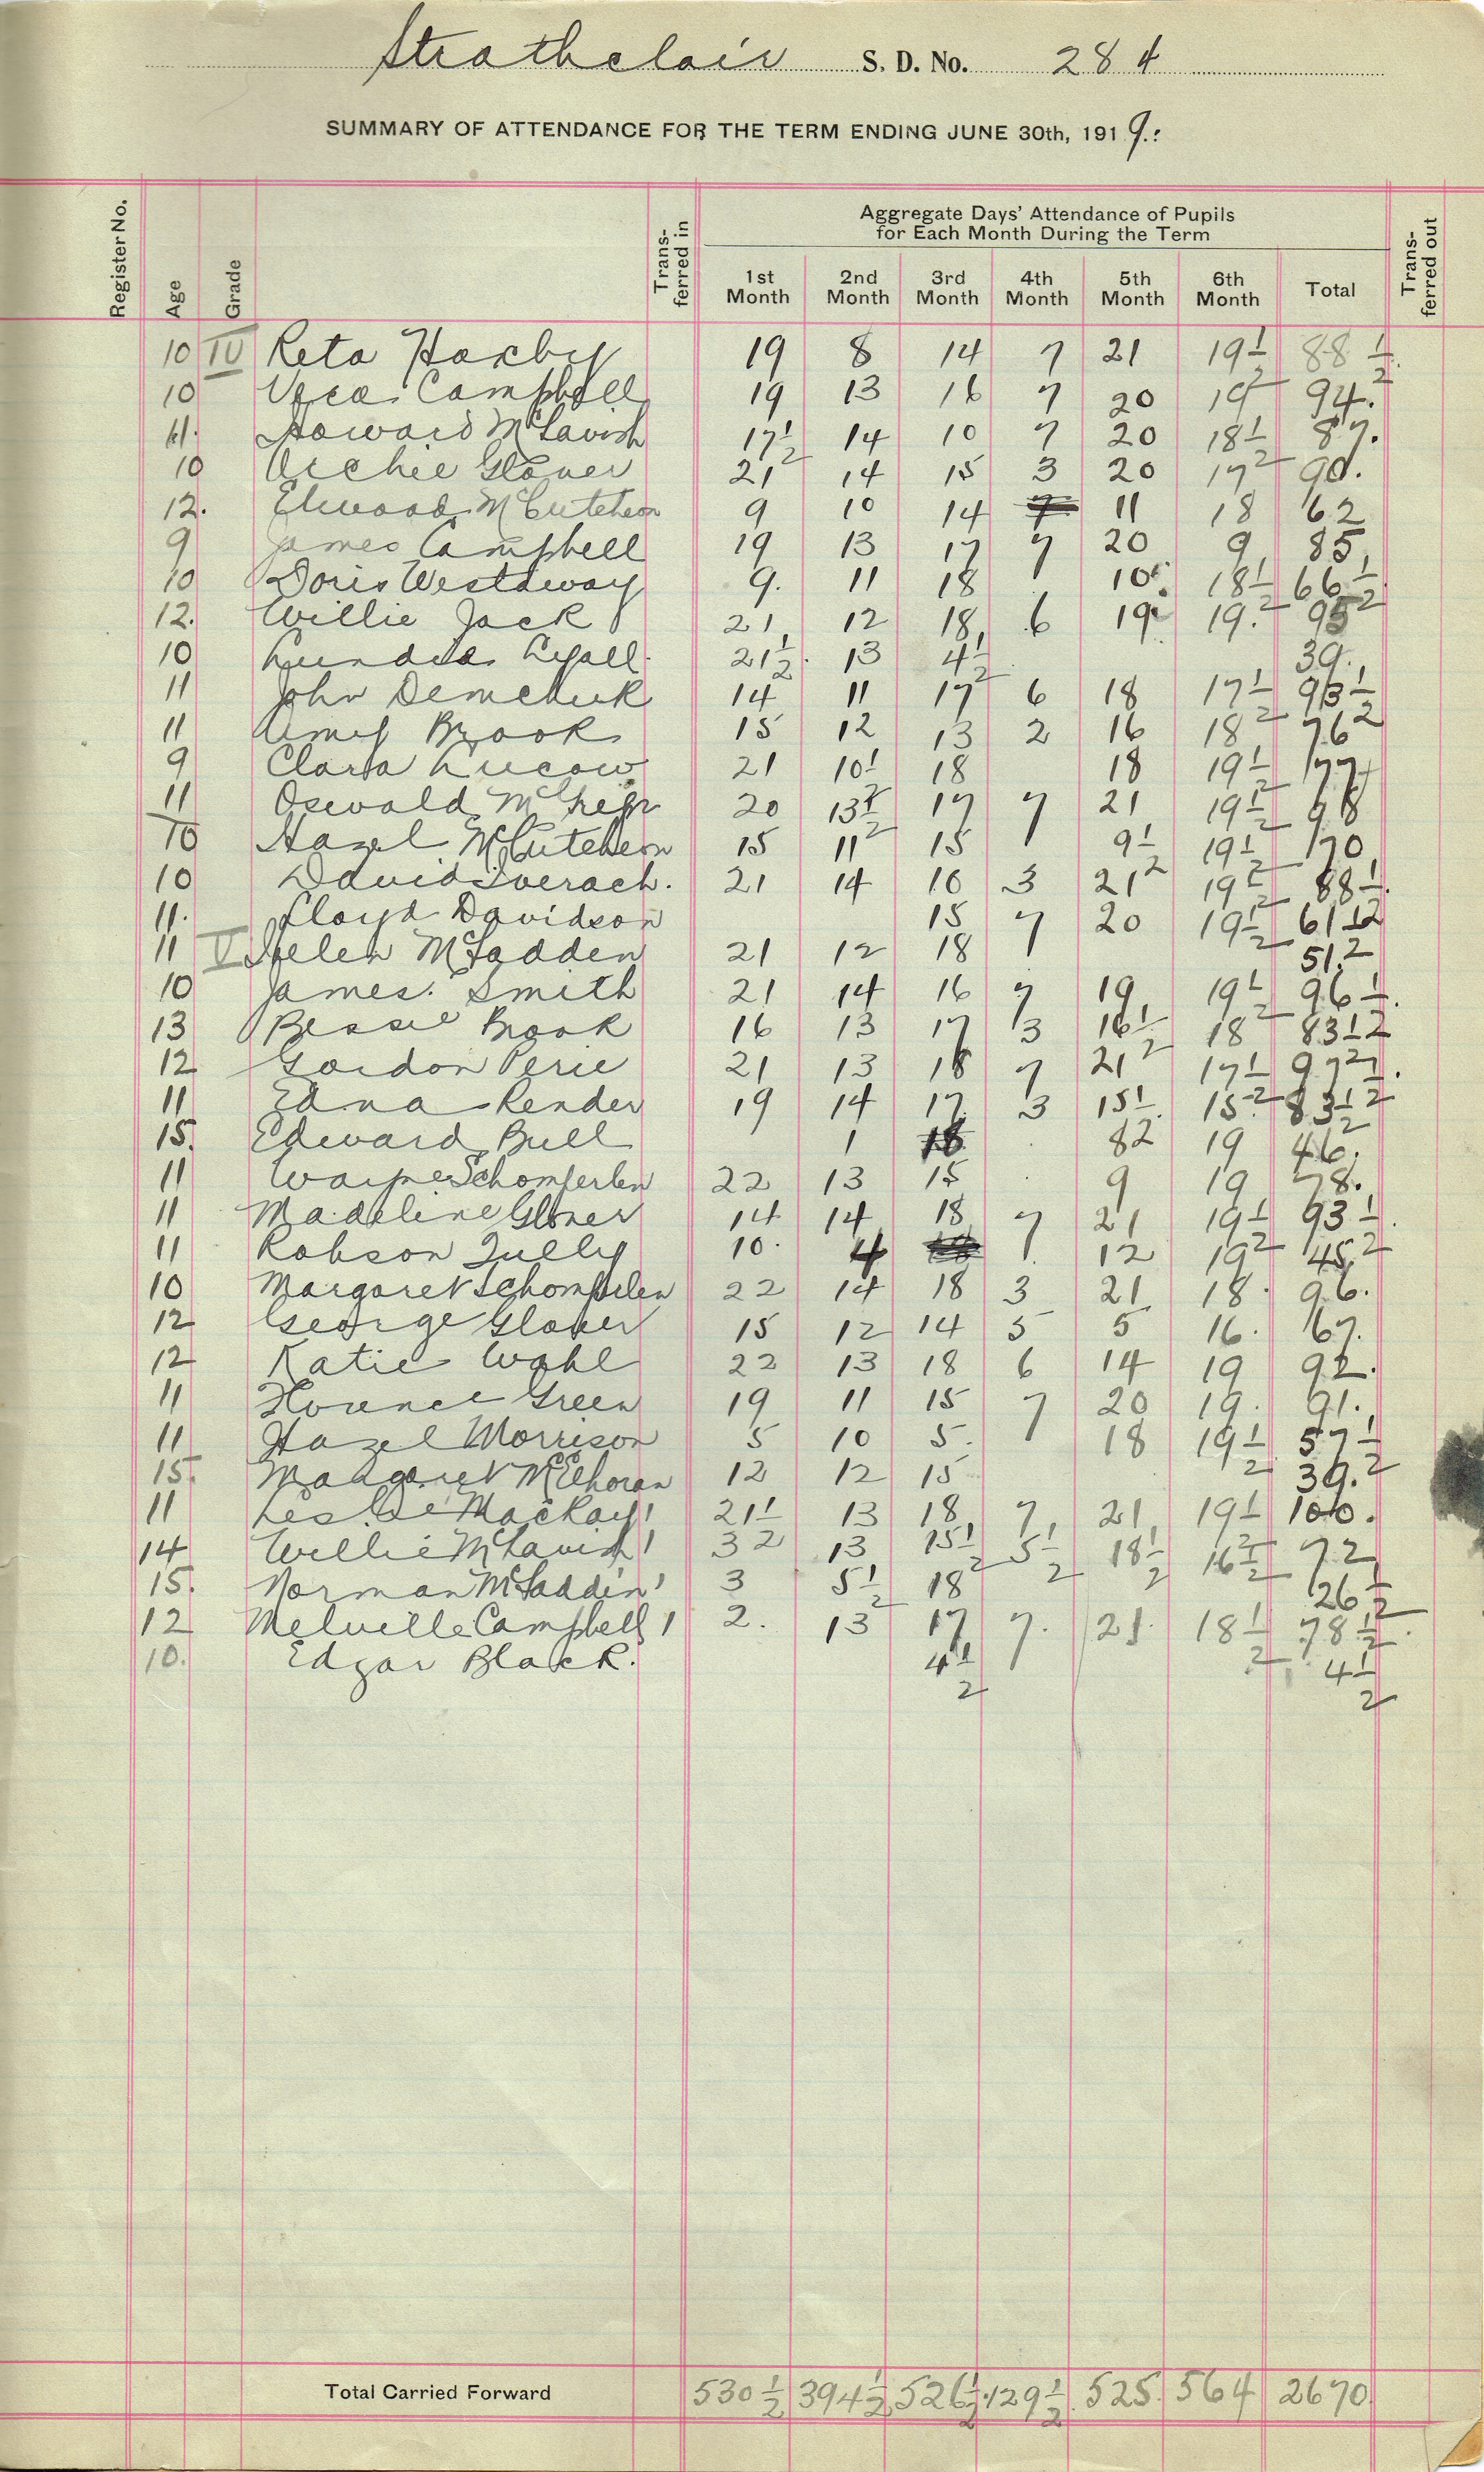 Strathclair S. D. No. 284
SUMMARY OF ATTENDANCE FOR THE TERM ENDING JUNE 30th, 1919.
Aggregate Days' Attendance of Pupils
for Each Month During the Term
Register No. Age Grade Trans-ferred in 1st Month 2nd Month 3rd Month 4th Month 5th Month 6th Month Total Trans-ferrred out
10 IV Reta Haxby 19 8 14 7 21 19½ 88½
10 Vera Campbell 19 13 16 7 20 19 94.
11. Howard McTavish 17½ 14 10 7 20 18½ 87.
10 Archie Glover 21 14 15 3 20 17 90.
12. Elwood McCutcheon 9 10 14 11 18 62
9 James Campbell 19 13 17 7 20 9 85
10 Doris Westaway 9. 11 18 10 18½ 66½
12. Willie Jack 21 12 18 6 19 19. 95
10 Lyall 21½ 13 4½ 39.
11 John Demchuk 14 11 17 6 18 17½ 93½
11 Amy Brook 15 12 13 2 16 18 76
9 Clara Lucow 21 10½ 18 18 19½ 77
11 Oswald 20 13½ 17 7 21 19½ 98
10 Hazel McCutcheon 15 11 15 9½ 19½ 70
10 David Iverach. 21 14 10 3 21 19½ 88½.
11. Lloyd Davidson 15 7 20 19½ 61½
11 V Helen McFadden 21 12 18 51.
10 James. Smith 21 14 16 7 19 19½ 96½.
13 Bessie Brook 16 13 17 3 16½ 18 83½
12 Gordon Perie 21 13 18 7 21 17½ 97½.
11 Edna Render 19 14 17 3 15½ 15 83½
15. Edward Bull 1 18 8 19 46.
11 Wayne Schomperlen 22 13 15 9 19 78.
11 Madeline Glover 14 14 18 7 21 19½ 93½.
11 Robson Tully 10. 4 12 19 45
10 Margaret Schomperlen 22 14 18 3 21 18. 96.
12 George Glover 15 12 14 5 5 16. 67.
12 Katie Wahl 22 13 18 6 14 19 92.
11 Florence Green 19 11 15 7 20 19. 91.
11 Hazel Morrison 5 10 5. 18 19½ 57½
15. Margaret McElhoran 12 12 15 39.
11 Leslie MacKay 21½ 13 18 7 21 19½ 100.
14 Willie McTavish 3 13 15½ 5½ 18½ 16½ 72
15. Norman McFaddin 3 5½ 18 26½
12 Melville Campbell 2. 13 17 7. 21. 18½ 78½.
10. Edgar Black. 4½ 4½
Total Carried Forward 530½ 394½ 526½ 129½ 525 564 2670